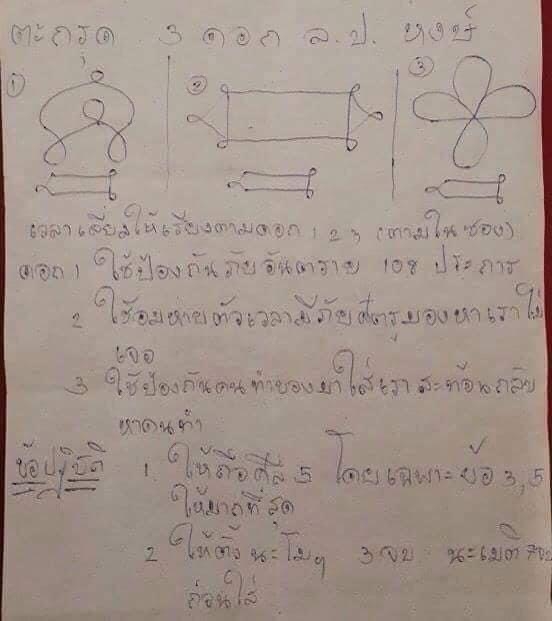 ตะกรุด 3 ดอก ล.ป. หงษ์
1 2 3
เวลาเลี่ยมให้เรียงตามดอก 1 2 3 (ตามในซอง)
ดอก 1 ใช้ป้องกันภัยอันตราย 108 ประการ
2 ใช้อมหายตัวเวลามีภัยศัตรูมองหาเราไม่
เจอ
3 ใช้ป้องกันคนทำของมาใส่เราสะท้อนกลับ
หาคนทำ
ข้อปฏิบัติ 1. ให้ถือศีล 5 โดยเฉพาะข้อ 3, 5
ให้มากที่สุด
2 ให้ตั้งนะโมฯ 3 จบ นะเมติ 7 จบ
ก่อนใส่